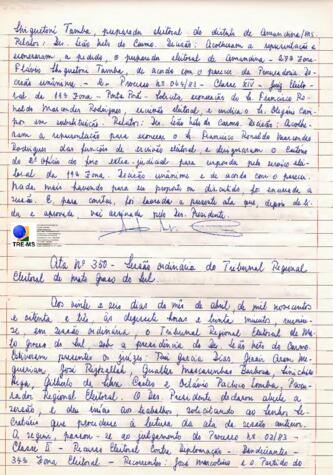 Shiguetoni Tamba, preparador eleitoral do distrito de Amandina/MS
Relator: Des. Leão Neto do Carmo. Decisão: Acolheram a representação e
exoneraram, a pedido, o preparador eleitoral de Amandina - 27ª Zona
Flávio Shiguetoni Tamba, de acordo com o parecer da Procuradoria. De
cisão unânime. - Processo nº 044/83 - Classe XIV - Juiz Eleito-
ral da 19ª Zona - Ponta Porã - Solicita exoneração do Sr. Francisco Ro-
naldo Marcondes Rodrigues, escrivão eleitoral, e indica o Sr. Olegário
em substituição. Relator: Des. Leão Neto do Carmo. Decisão: Acolhe-
ram a representação para exonerar o Sr. Francisco Ronaldo Marcondes
Rodrigues das funções de escrivão eleitoral e designaram o Cartório
do 2º Ofício do foro extra-judicial para responder pelo serviço elei-
toral da 19ª Zona. Decisão unânime e de acordo com o parecer.
Nada mais havendo para ser proposto ou discutido foi encerrada a
sessão. E, para constar, foi lavrada a presente ata que, depois de li-
da e aprovada, vai assinada pelo Sr. Presidente.
TRE-MS
Ata Nº 350 - Sessão ordinária do Tribunal Regional
Eleitoral de Mato Grosso do Sul
Aos vinte e seis dias do mês de abril, de mil novecentos
e oitenta e três, às dezessete horas e trinta minutos, reuniu-
se, em sessão ordinária, o Tribunal Regional Eleitoral de Ma-
to Grosso do Sul sob a presidência do Des. Leão Neto do Carmo.
Estiveram presentes os juízes: Rui Garcia Dias, Gerval
José Rizkallah, Gualter Mascarenhas Barbosa,
e Octávio Pacheco Lomba, Procu-
rador Regional Eleitoral. O Des. Presidente declarou aberta a
sessão, e deu início aos trabalhos, solicitando ao senhor Se-
cretário que procedesse à leitura da ata da sessão anterior.
A seguir, passou-se ao julgamento do Processo nº 02/83 -
Classe II - Recurso Eleitoral Contra Diplomação - Bandeirantes -
34ª Zona Eleitoral - Recorrentes: José Marcolino e o Partido do